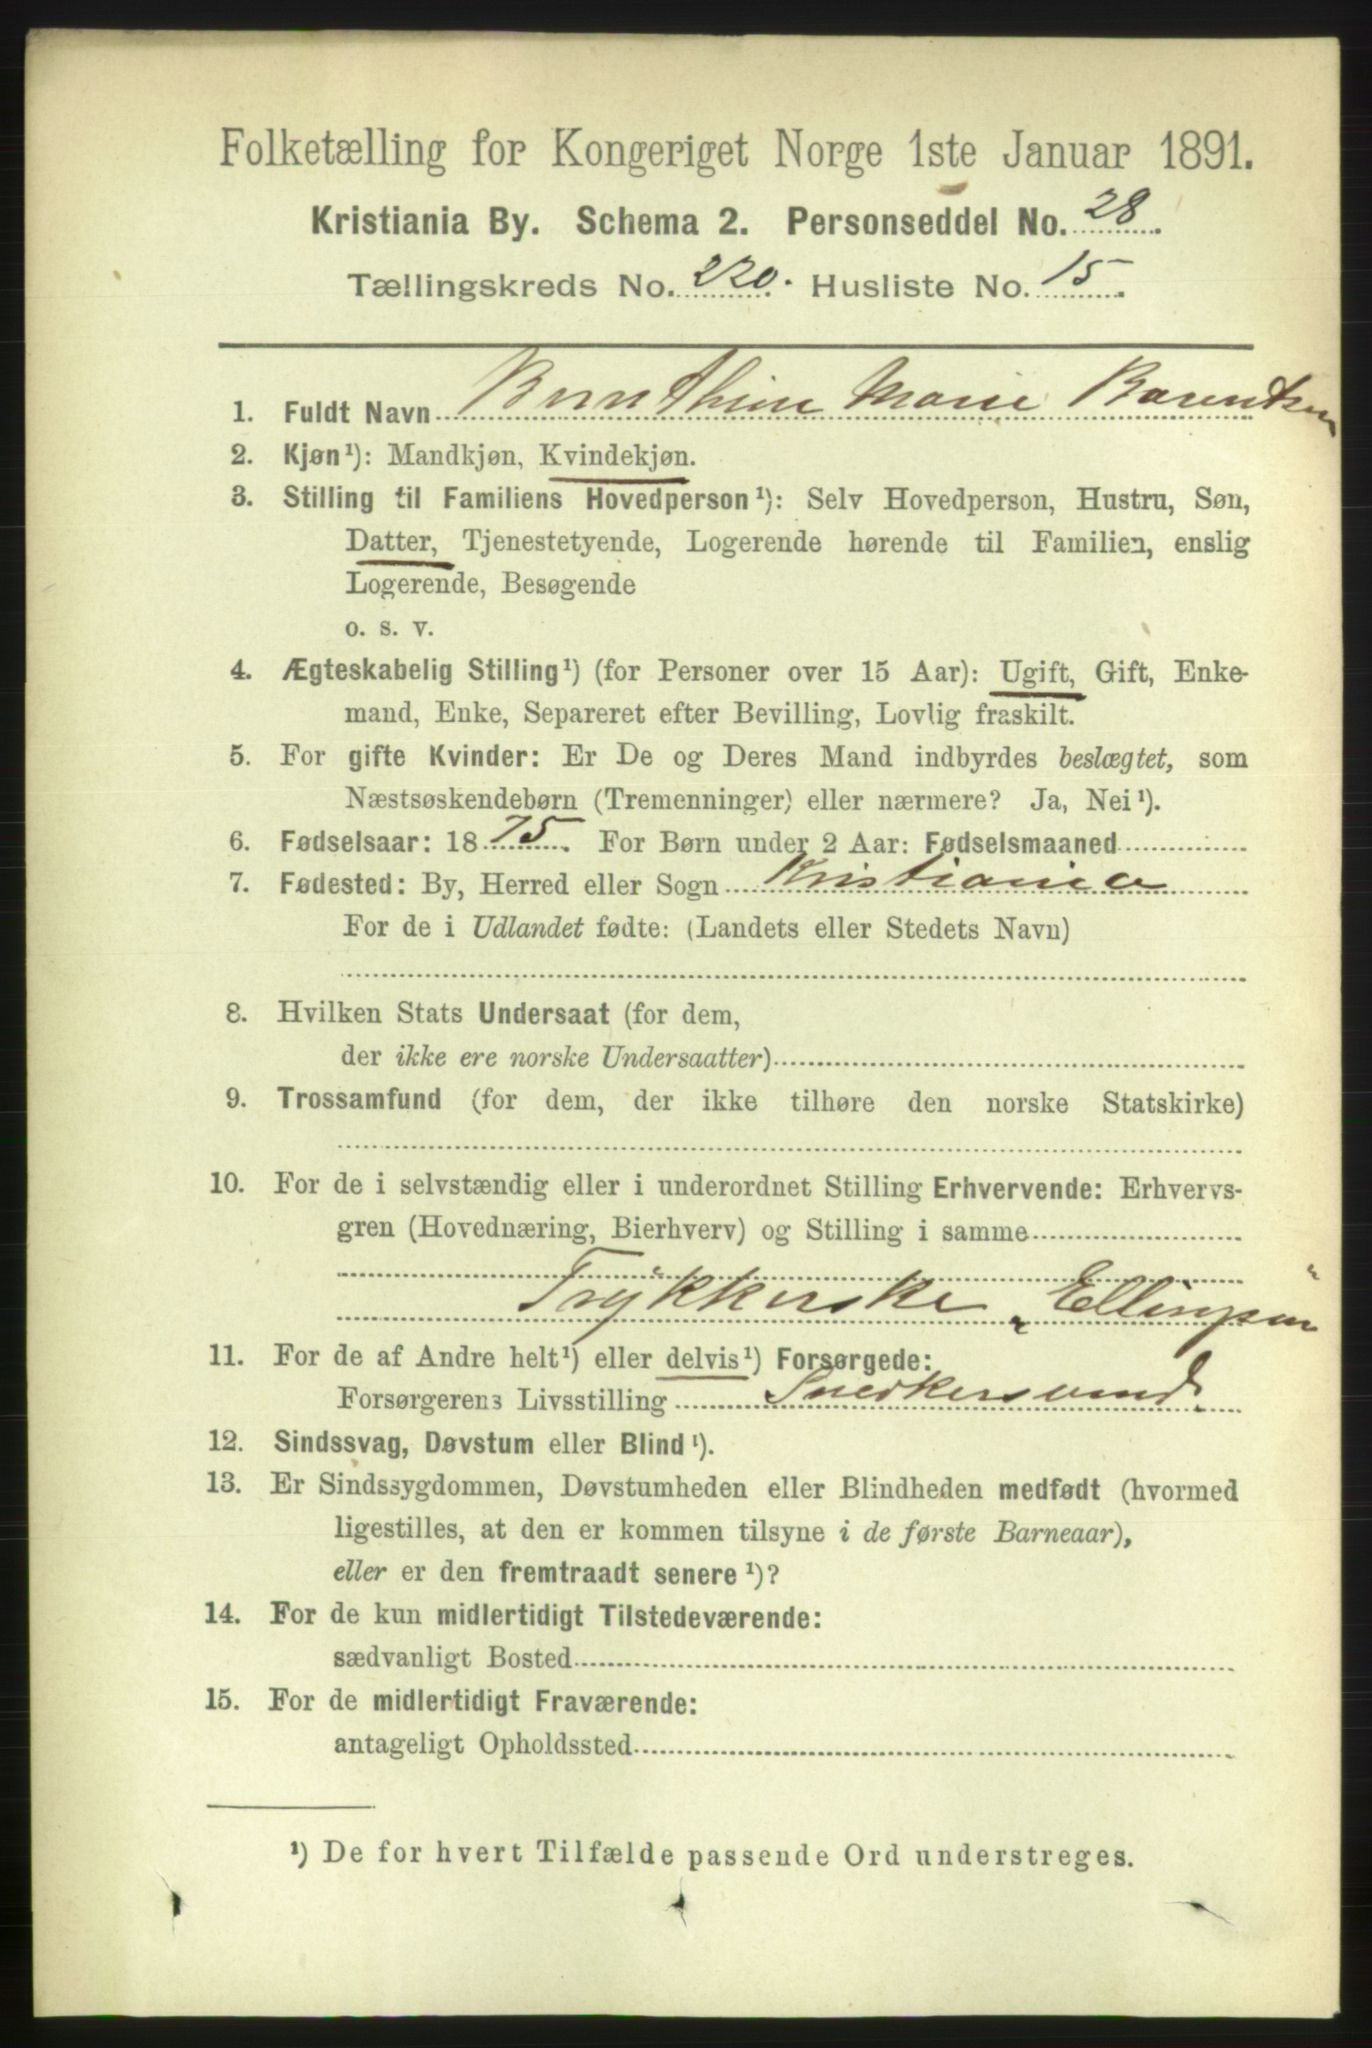 Folketælling for Kongeriget Norge 1ste Januar 1891.
Kristiania By. Schema 2. Personseddel No. 28.
Tællingskreds No. 220. Husliste No. 15.
1. Fuldt Navn Bernthine Marie Barentsen
2. Kjøn¹): Mandkjøn, Kvindekjøn.
3. Stilling til Familiens Hovedperson¹): Selv Hovedperson, Hustru, Søn,
Datter, Tjenestetyende, Logerende hørende til Familien, enslig
Logerende, Besøgende
o. s. v.
4. Ægteskabelig Stilling¹) (for Personer over 15 Aar): Ugift, Gift, Enke-
mand, Enke, Separeret efter Bevilling, Lovlig fraskilt.
5. For gifte Kvinder: Er De og Deres Mand indbyrdes beslægtet, som
Næstsøskendebørn (Tremenninger) eller nærmere? Ja, Nei¹).
6. Fødselsaar: 1875. For Børn under 2 Aar: Fødselsmaaned
7. Fødested: By, Herred eller Sogn Kristiania
For de i Udlandet fødte: (Landets eller Stedets Navn)
8. Hvilken Stats Undersaat (for dem,
der ikke ere norske Undersaatter)
9. Trossamfund (for dem, der ikke tilhøre den norske Statskirke)
10. For de i selvstændig eller i underordnet Stilling Erhvervende: Erhvervs-
gren (Hovednæring, Bierhverv) og Stilling i samme
Trykkerske „Ellingsen"
11. For de af Andre helt¹) eller delvis¹) Forsørgede:
Forsørgerens Livsstilling Snedkersvend.
12. Sindssvag, Døvstum eller Blind¹).
13. Er Sindssygdommen, Døvstumheden eller Blindheden medfødt (hvormed
ligestilles, at den er kommen tilsyne i de første Barneaar),
eller er den fremtraadt senere¹)?
14. For de kun midlertidigt Tilstedeværende:
sædvanligt Bosted
15. For de midlertidigt Fraværende:
antageligt Opholdssted
¹) De for hvert Tilfælde passende Ord understreges.